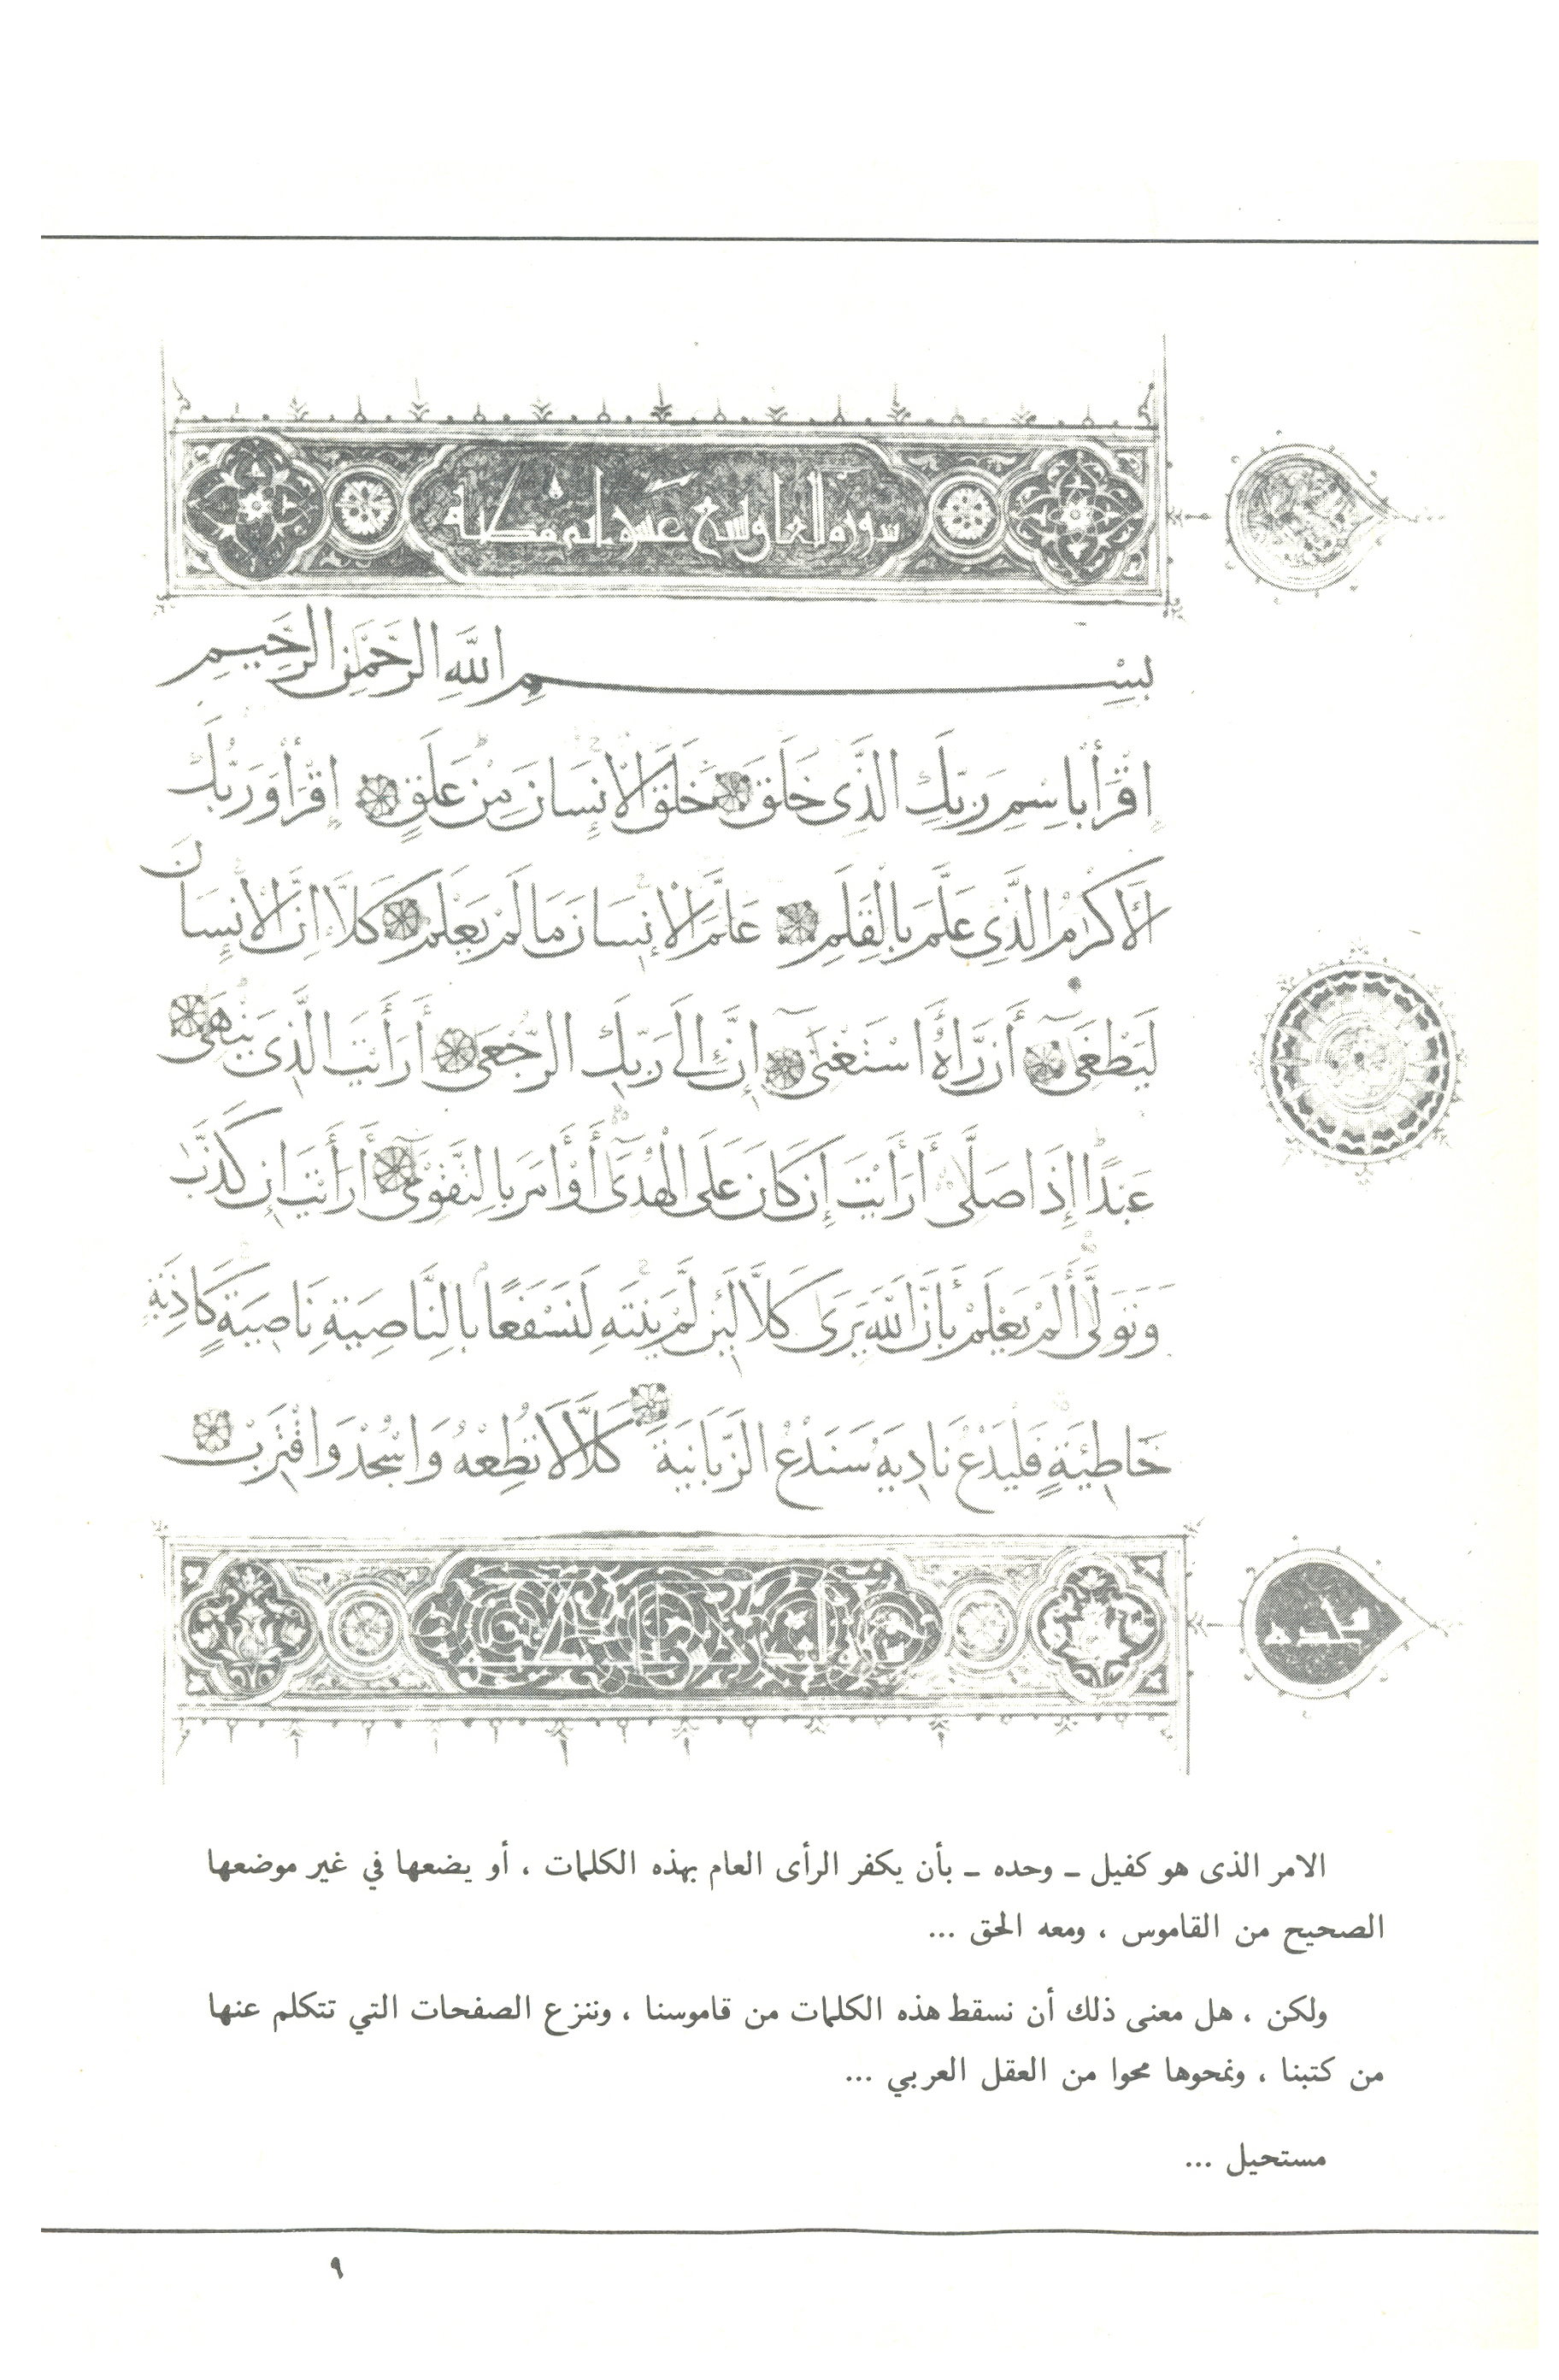 سورة العلق تسع عشره اية مكية
بِسْمِ اللَّهِ الرَّحْمٰنِ الرَّحِيمِ
اِقْرَأْ بِاسْمِ رَبِّكَ الَّذِى خَلَقَ خَلَقَ الْاِنْسَانَ مِنْ عَلَقٍ اِقْرَأْ وَرَبُّكَ
الْاَكْرَمُ الَّذِى عَلَّمَ بِالْقَلَمِ عَلَّمَ الْاِنْسَانَ مَا لَمْ يَعْلَمْ كَلَّا اِنَّ الْاِنْسَانَ
لَيَطْغَى أَن رَّاهُ اسْتَغْنَى إِنَّ إِلَى رَبِّكَ الرُّجْعَى أَرَأَيْتَ الَّذِى يَنْهَى
عَبْدًا إِذَا صَلَّى أَرَأَيْتَ إِن كَانَ عَلَى الْهُدَى أَوْ أَمَرَ بِالتَّقْوَى أَرَأَيْتَ إِن كَذَّبَ
وَتَوَلَّى أَلَمْ يَعْلَمْ بِأَنَّ اللَّهَ يَرَى كَلَّا لَئِن لَّمْ يَنتَهِ لَنَسْفَعًا بِالنَّاصِيَةِ نَاصِيَةٍ كَاذِبَةٍ
خَاطِئَةٍ فَلْيَدْعُ نَادِيَهُ سَنَدْعُ الزَّبَانِيَةَ كَلَّا لَا تُطِعْهُ وَاسْجُدْ وَاقْتَرِبْ
الامر الذى هو كفيل ــ وحده ــ بأن يكفر الرأى العام بهذه الكلمات ، أو يضعها في غير موضعها
الصحيح من القاموس ، ومعه الحق ...
ولكن ، هل معنى ذلك أن نسقط هذه الكلمات من قاموسنا ، وننزع الصفحات التي تتكلم عنها
من كتبنا ، ونمحوها محوا من العقل العربي ...
مستحيل ...
٩